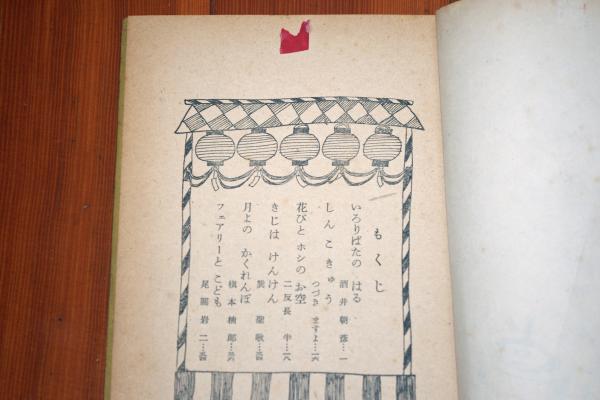 もくじ
いろりばたの はる
酒井朝彦…一
しんこきゅう
つづき ますよ…一六
花びと ホシの お空
二反長 半…一八
きじは けんけん
巽 聖歌…
月よの かくれんぼ
槇本楠郎…
フェアリーと こども
尾関岩二…